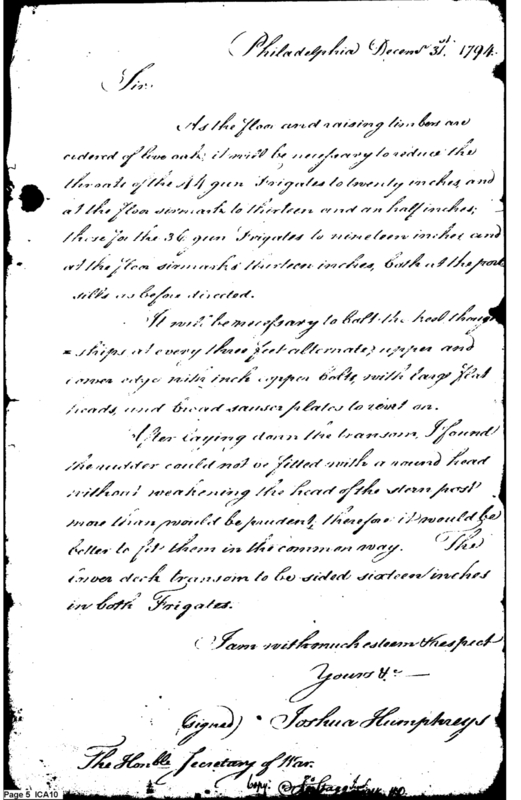 Philadelphia Decemr 31st. 1794.
Sir.
As the floor and raising timbers are
ordered of live oak; it will be necessary to reduce the
throats of the 44 gun Frigates to twenty inches, and
at the floor sirmark to thirteen and an half inches;
those for the 36 gun Frigates to nineteen inches and
at the floor sirmarks thirteen inches, both at the port
sills as before directed.
It will be necessary to bolt the keel, though
= ships at every three feet alternate, upper and
lower edge with inch copper bolts, with large flat
heads, and broad sauser plates to rivit on.
After laying down the transom, I found
the rudder could not be fitted with a round head
without weakening the head of the stern post
more than would be prudent, therefore it would be
better to fit them in the common way. The
lower deck transom to be sided sixteen inches
in both Frigates.
I am with much esteem & respect
Yours &c
(signed) Joshua Humphreys
The Honble Secretary of War.
Copy:
Page 5 ICA10